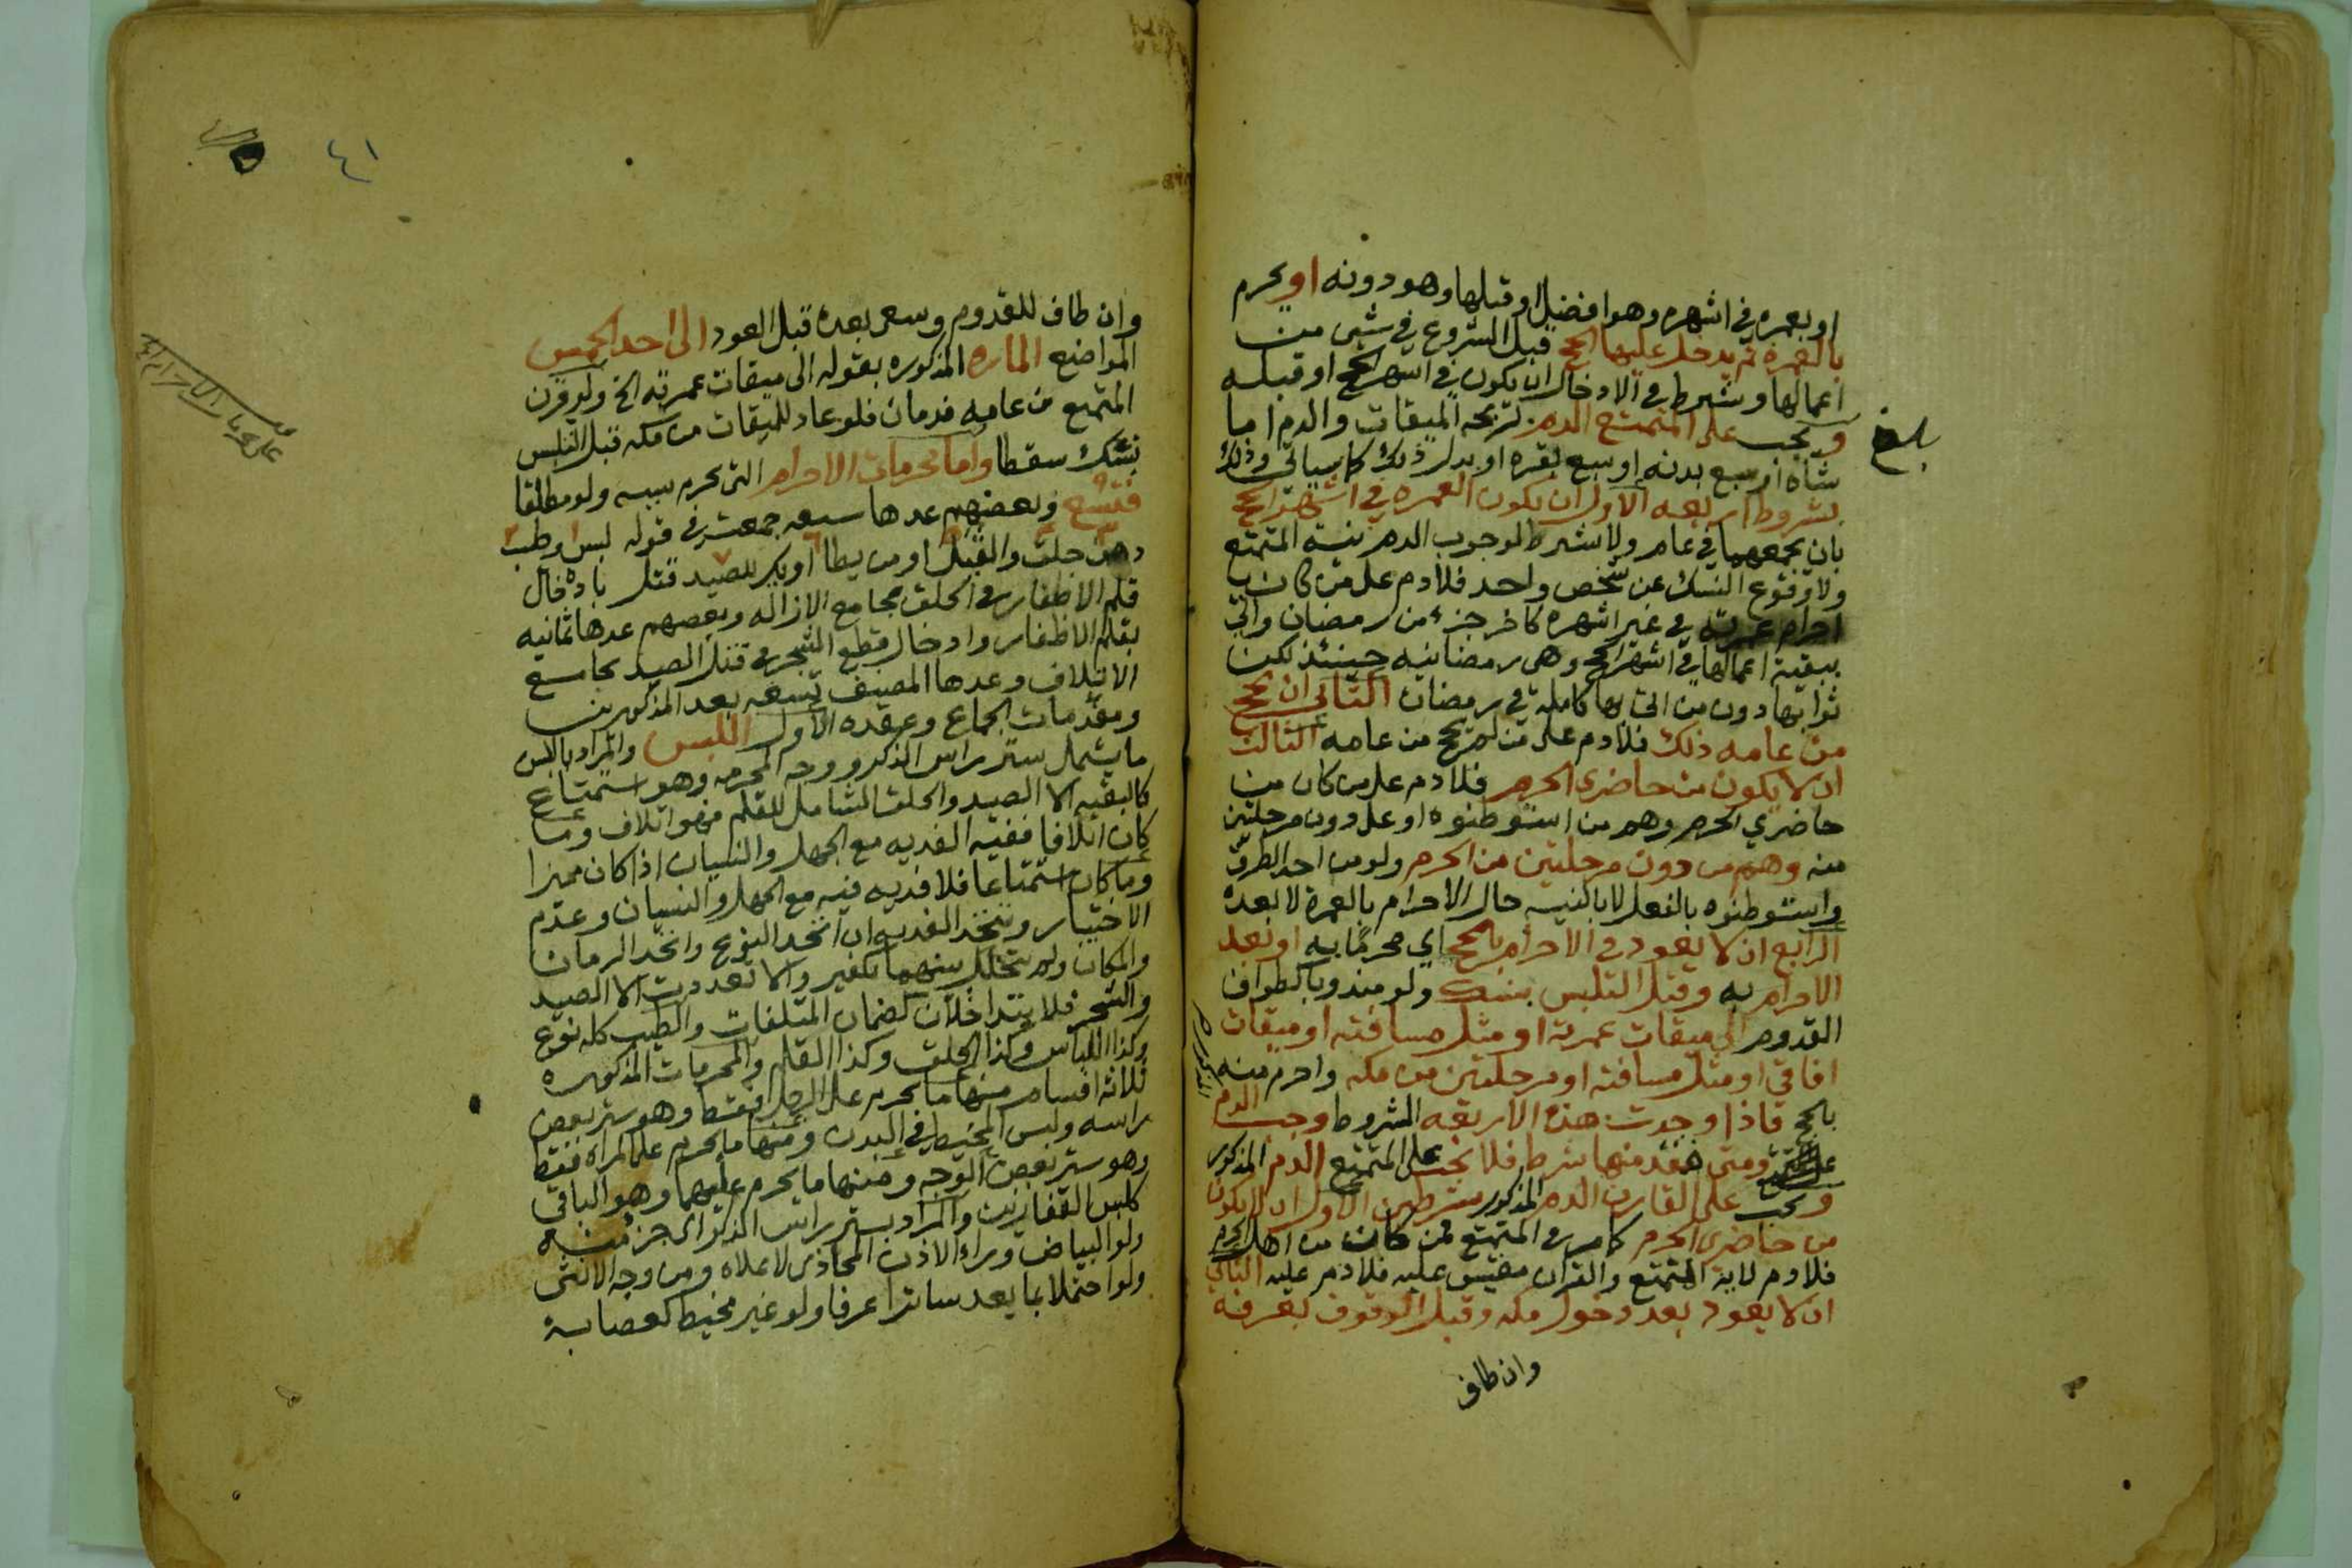 او بعمره في اشهره وهو افضل او قبلها وهو دونه او يحرم
بالعمرة ثم يدخل عليها الحج قبل الشروع في شي من
اعمالها وشرط في الادخال ان يكون في اشهر الحج او قبله
بلغ
ويجب على المتمتع الدم لربحه الميقات والدم اما
شاة او سبع بدنه او سبع بقره او بدل ذلك كما سياتي وذلك
بشروط اربعه الاول ان تكون العمره في اشهر الحج
بان يجمعهما في عام ولا يشترط لوجوب الدم نية المتمتع
ولا وقوع النسك عن شخص واحد فلا دم على من كان
احرام عمرته في غير اشهره كاخر جزء من رمضان واتي
ببقية اعمالها في اشهر الحج وهي رمضانيه حينئذ لكن
ثوابها دون من اتى بها كاملة في رمضان الثاني ان يحج
من عامه ذلك فلا دم على من لم يحج من عامه الثالث
ان لا يكون من حاضري الحرم فلا دم على من كان من
حاضري الحرم وهم من استوطنوه او على دون مرحلتين
منه وهم من دون مرحلتين من الحرم ولو من احد الطرق
واستوطنوه بالفعل لا بالنيه حال الاحرام بالعمرة لا بعده
الرابع ان لا يعود في الاحرام بالحج اي محرما به او بعد
الاحرام به وقبل التلبس بنسك ولو مندوبا كطواف
القدوم الى ميقات عمرته او مثل مسافته او ميقات
افاقي او مثل مسافته او مرحلتين من مكه واحرم منه
بالحج فاذا وجدت هذه الاربعه الشروط وجب الدم
المذكور
ومتى فقد منها شرط فلا يجب على المتمتع الدم المذكور
ويجب على القارن الدم المذكور بشرطين الاول ان لا يكون
من حاضري الحرم كما مر في المتمتع فمن كان من اهل الحرم
فلا دم لاية المتمتع والقران مقيس عليه فلا دم عليه الثاني
ان لا يعود بعد دخول مكه وقبل الوقوف بعرفه
وان طاف
٤١
وان طاف للقدوم وسعى بعده قبل العود الى احد الخمس
المواضع الماره المذكوره بقوله الى ميقات عمرته الخ ولو قرن
المتمتع من عامه فدمان فلو عاد للميقات من مكه قبل التلبس
بنسك سقطا واما محرمات الاحرام التي تحرم بسببه ولو مطلقا
فتسع وبعضهم عدها سبعه جمعت في قوله لبس وطيب
دهن حلق والقبل او من يطا او يكر للصيد قتل بادخال
قلم الاظفار في الحلق بجامع الازاله وبعضهم عدها ثمانيه
بقلم الاظفار وادخال قطع الشجر في قتل الصيد بجامع
الاتلاف وعدها المصنف تسعه بعد المذكورين
ومقدمات الجماع وعقده الاول اللبس والمراد باللبس
ما يشمل ستر راس الذكر ووجه المحرمه وهو استمتاع
كالبقيه الا الصيد والحلق الشامل للقلم فهو اتلاف وما
كان اتلافا ففيه الفديه مع الجهل والنسيان اذا كان مميزا
وما كان استمتاعا فلا فديه فيه مع الجهل والنسيان وعدم
الاختيار وتتحد الفديه ان اتحد النوع واتحد الزمان
والمكان ولم يتخلل بينهما تكفير والا تعددت الا الصيد
والشجر فلا يتداخلان كضمان المتلفات والطيب كله نوع
وكذا اللباس وكذا الحلق وكذا القلم والمحرمات المذكوره
ثلاثه اقسام منها ما يحرم على الرجل فقط وهو ستر بعض
راسه ولبس المخيط في البدن ومنها ما يحرم على المراه فقط
وهو ستر بعض الوجه ومنها ما يحرم عليهما وهو الباقي
كلبس القفازين والمراد بستر راس الذكر اي جزء منه
ولو البياض وراء الاذن المحاذي لاعلاه ومن وجه الانثى
ولو احتمالا بما يعد ساترا عرفا ولو غير مخيط كعصابة